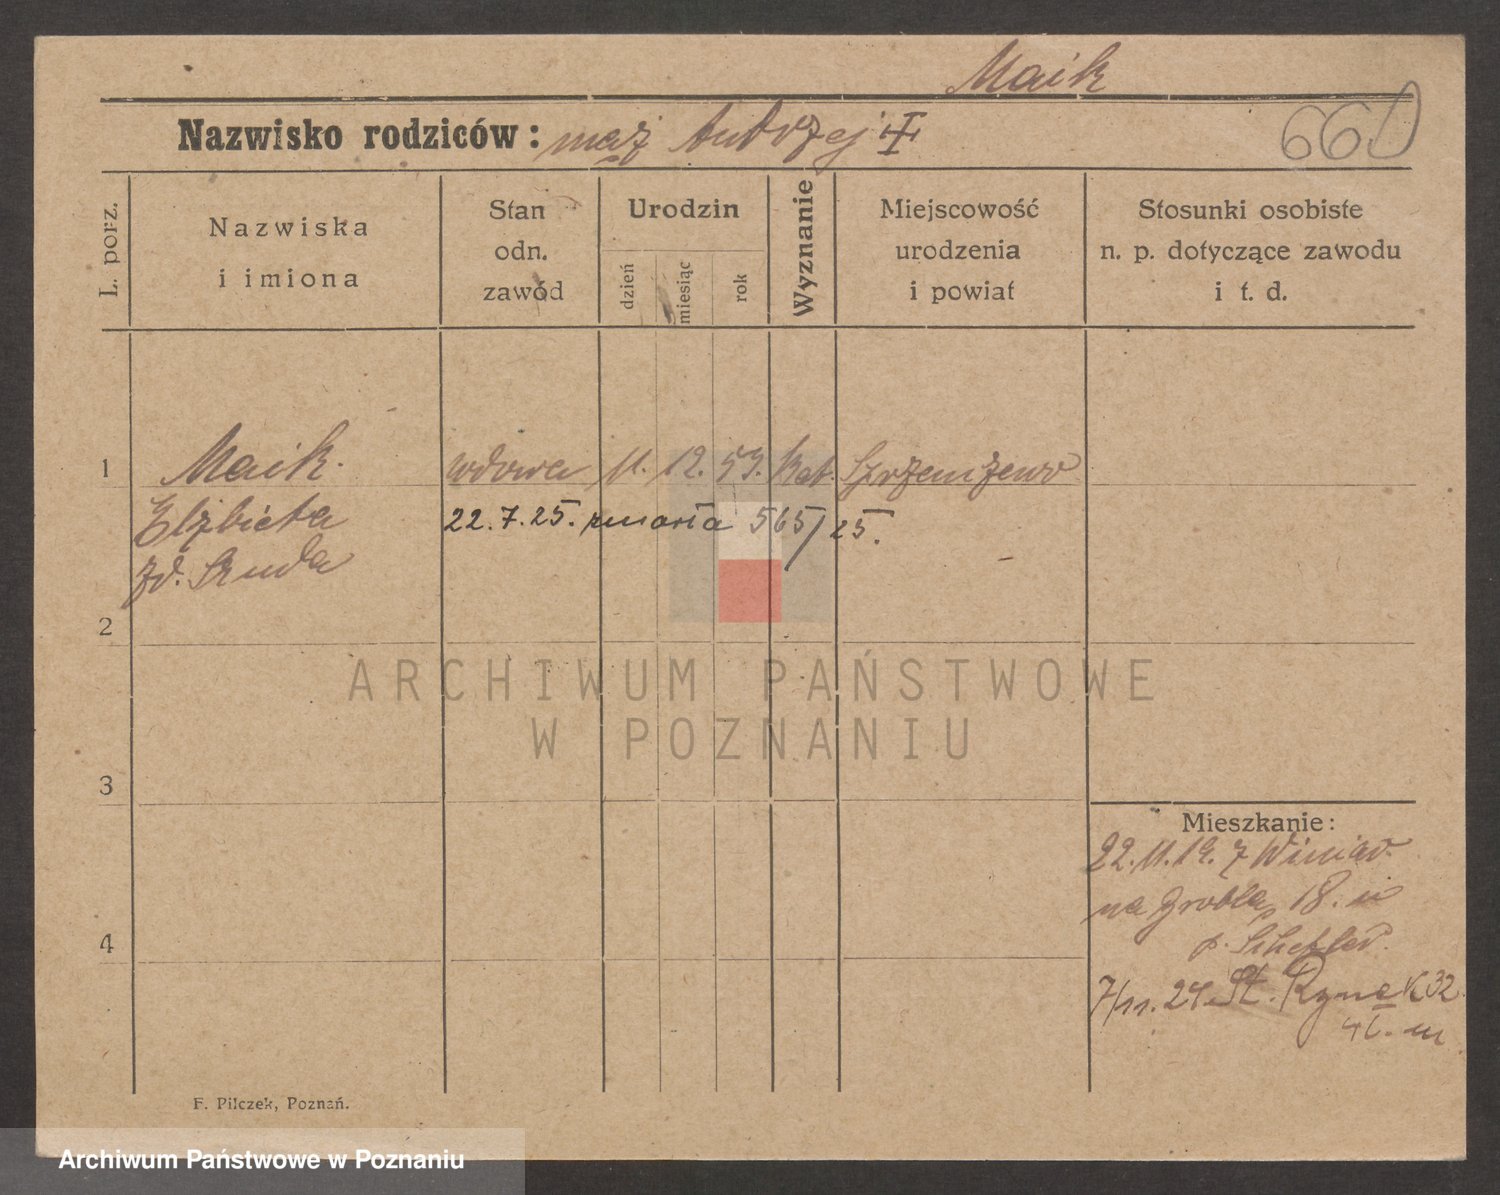 Maik
Nazwisko rodziców: mąż Andrzej I
660
L. porz.
Nazwiska
i imiona
Stan
odn.
zawód
Urodzin
dzień
miesiąc
rok
Wyznanie
Miejscowość
urodzenia
i powiat
Stosunki osobiste
n. p. dotyczące zawodu
i t. d.
1
Maik. wdowa 11. 12. 53. kat.
Elżbieta
22.7.25. zmarła 565/25.
zd.
2
ARCHIWUM PAŃSTWOWE
W POZNANIU
3
Mieszkanie:
22. 11. 19. z Winiar
na Grobla 18.
4
p.
7/11. 24. St. Rynek 32
F. Pilczek, Poznań.
Archiwum Państwowe w Poznaniu